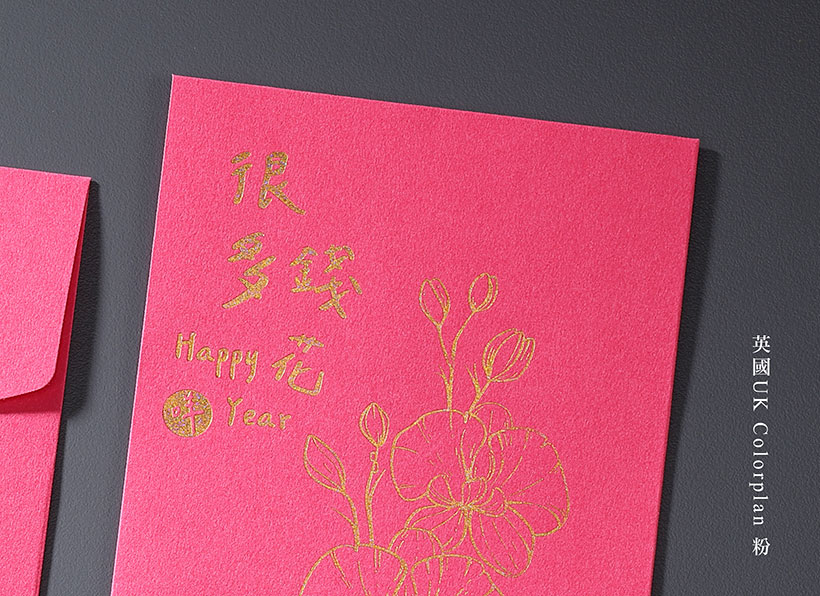 很
多錢
Happy 花
Year
英國UK Colorplan 粉